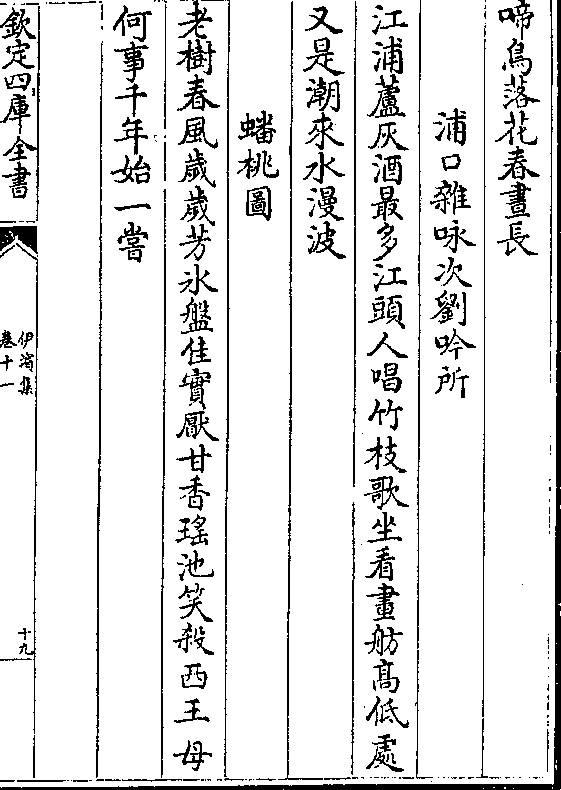 啼鳥落花春晝長
浦口雜咏次劉吟所
江浦蘆灰酒最多江頭人唱竹枝歌坐看畫舫高低處
又是潮來水漫波
蟠桃圖
老樹春風歲歲芳氷盤佳實厭甘香瑤池笑殺西王母
何事千年始一嘗
欽定四庫全書
伊濱集
卷十一
十九